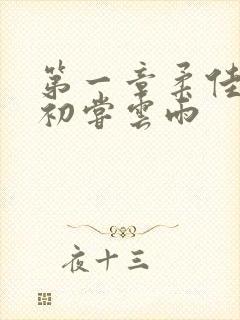 第一章柔佳
初嘗雲雨
夜十三